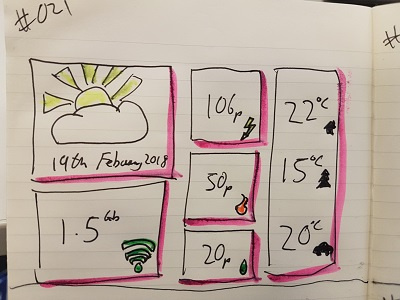 #021
19th Febuary 2018
1.5 Gb
106p
50p
20p
22°C
15°C
20°C